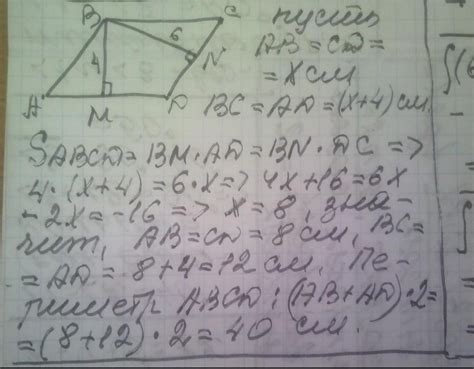 B
C
6
N
4
A
M
D
пусть
AB=CD=
=Xсм
BC=AD=(x+4) см.
SABCD=BM·AD=BN·DC=>
4·(x+4)=6·x=> 4x+16=6x
-2x=-16=> x=8, зна-
чит, AB=CD=8 см, BC=
=AD=8+4=12 см. Пе-
риметр ABCD: (AB+AD)·2=
=(8+12)·2=40 см.